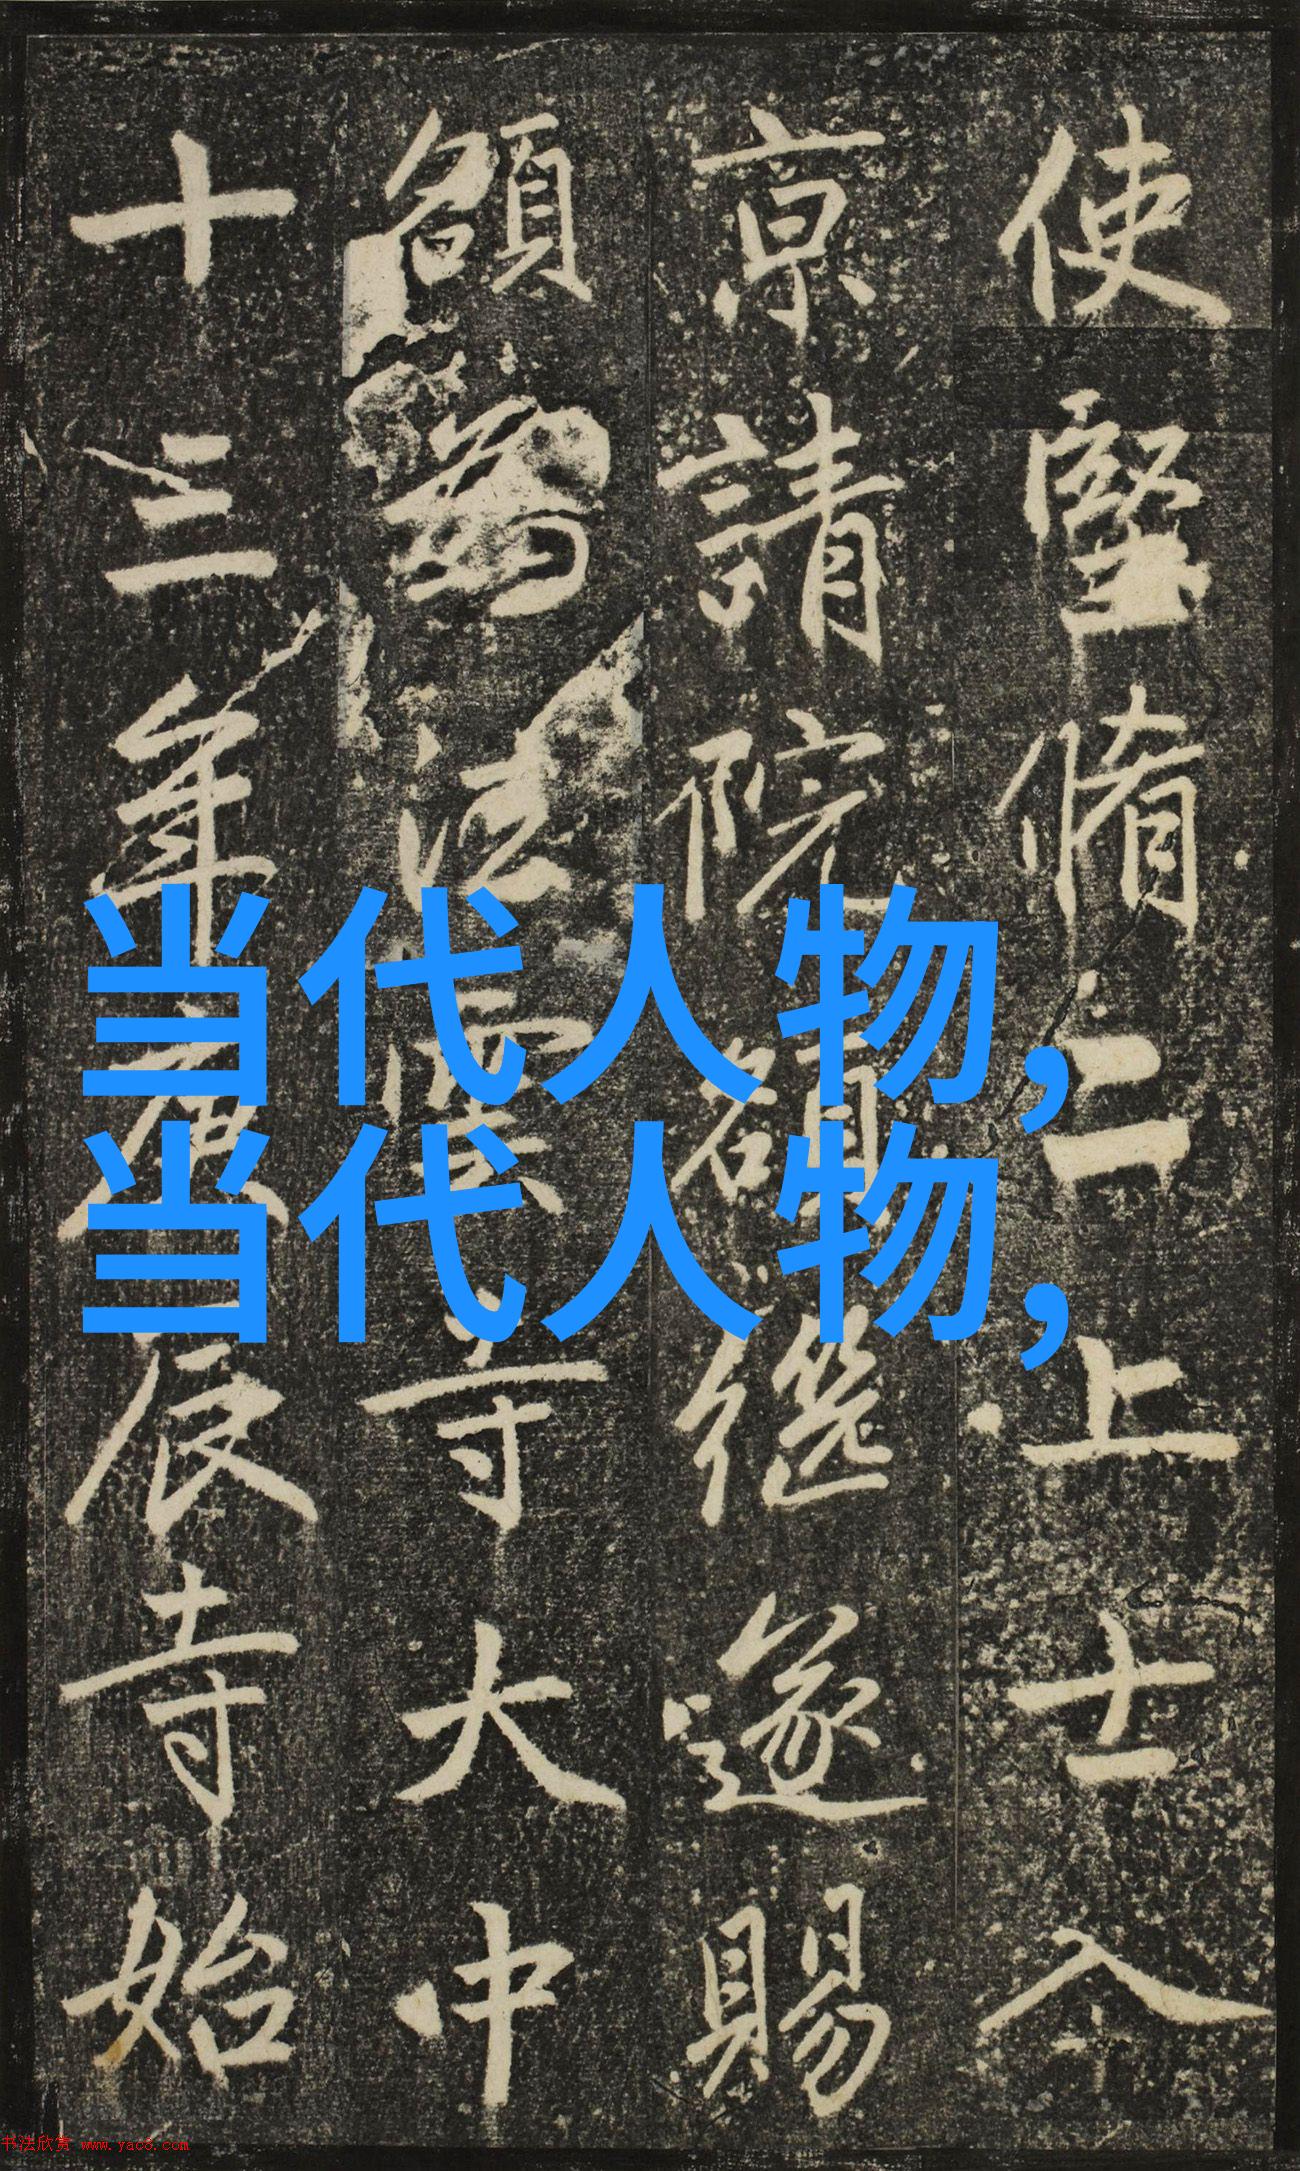 使堅脩二上士入
京請院額繼遂賜
額為法雲寺大中
十三年庚辰寺始
当代人物,
当代人物,
书法欣赏 www.yac8.com